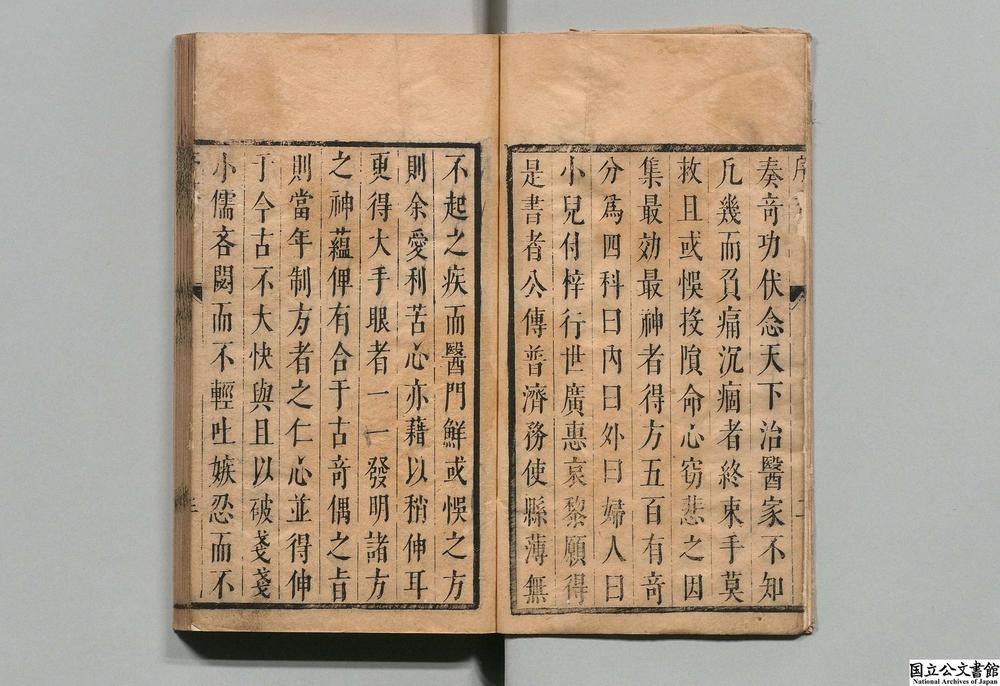 序
奏竒功伏念天下治醫家不知
凢幾而負痛沉痼者終束手莫
救且或悞投隕命心窃悲之因
集最効最神者得方五百有竒
分爲四科曰內曰外曰婦人曰
小兒付梓行世廣惠哀黎願得
是書者公傳普濟務使縣薄無
不起之疾而醫門鮮或悞之方
則余愛利苦心亦藉以稍伸耳
更得大手眼者一一發明諸方
之神蘊俾有合于古竒偶之㫖
則當年制方者之仁心並得伸
于今古不大快與且以破戔戔
小儒吝閟而不輕吐嫉忍而不
国立公文書館
National Archives of Japan